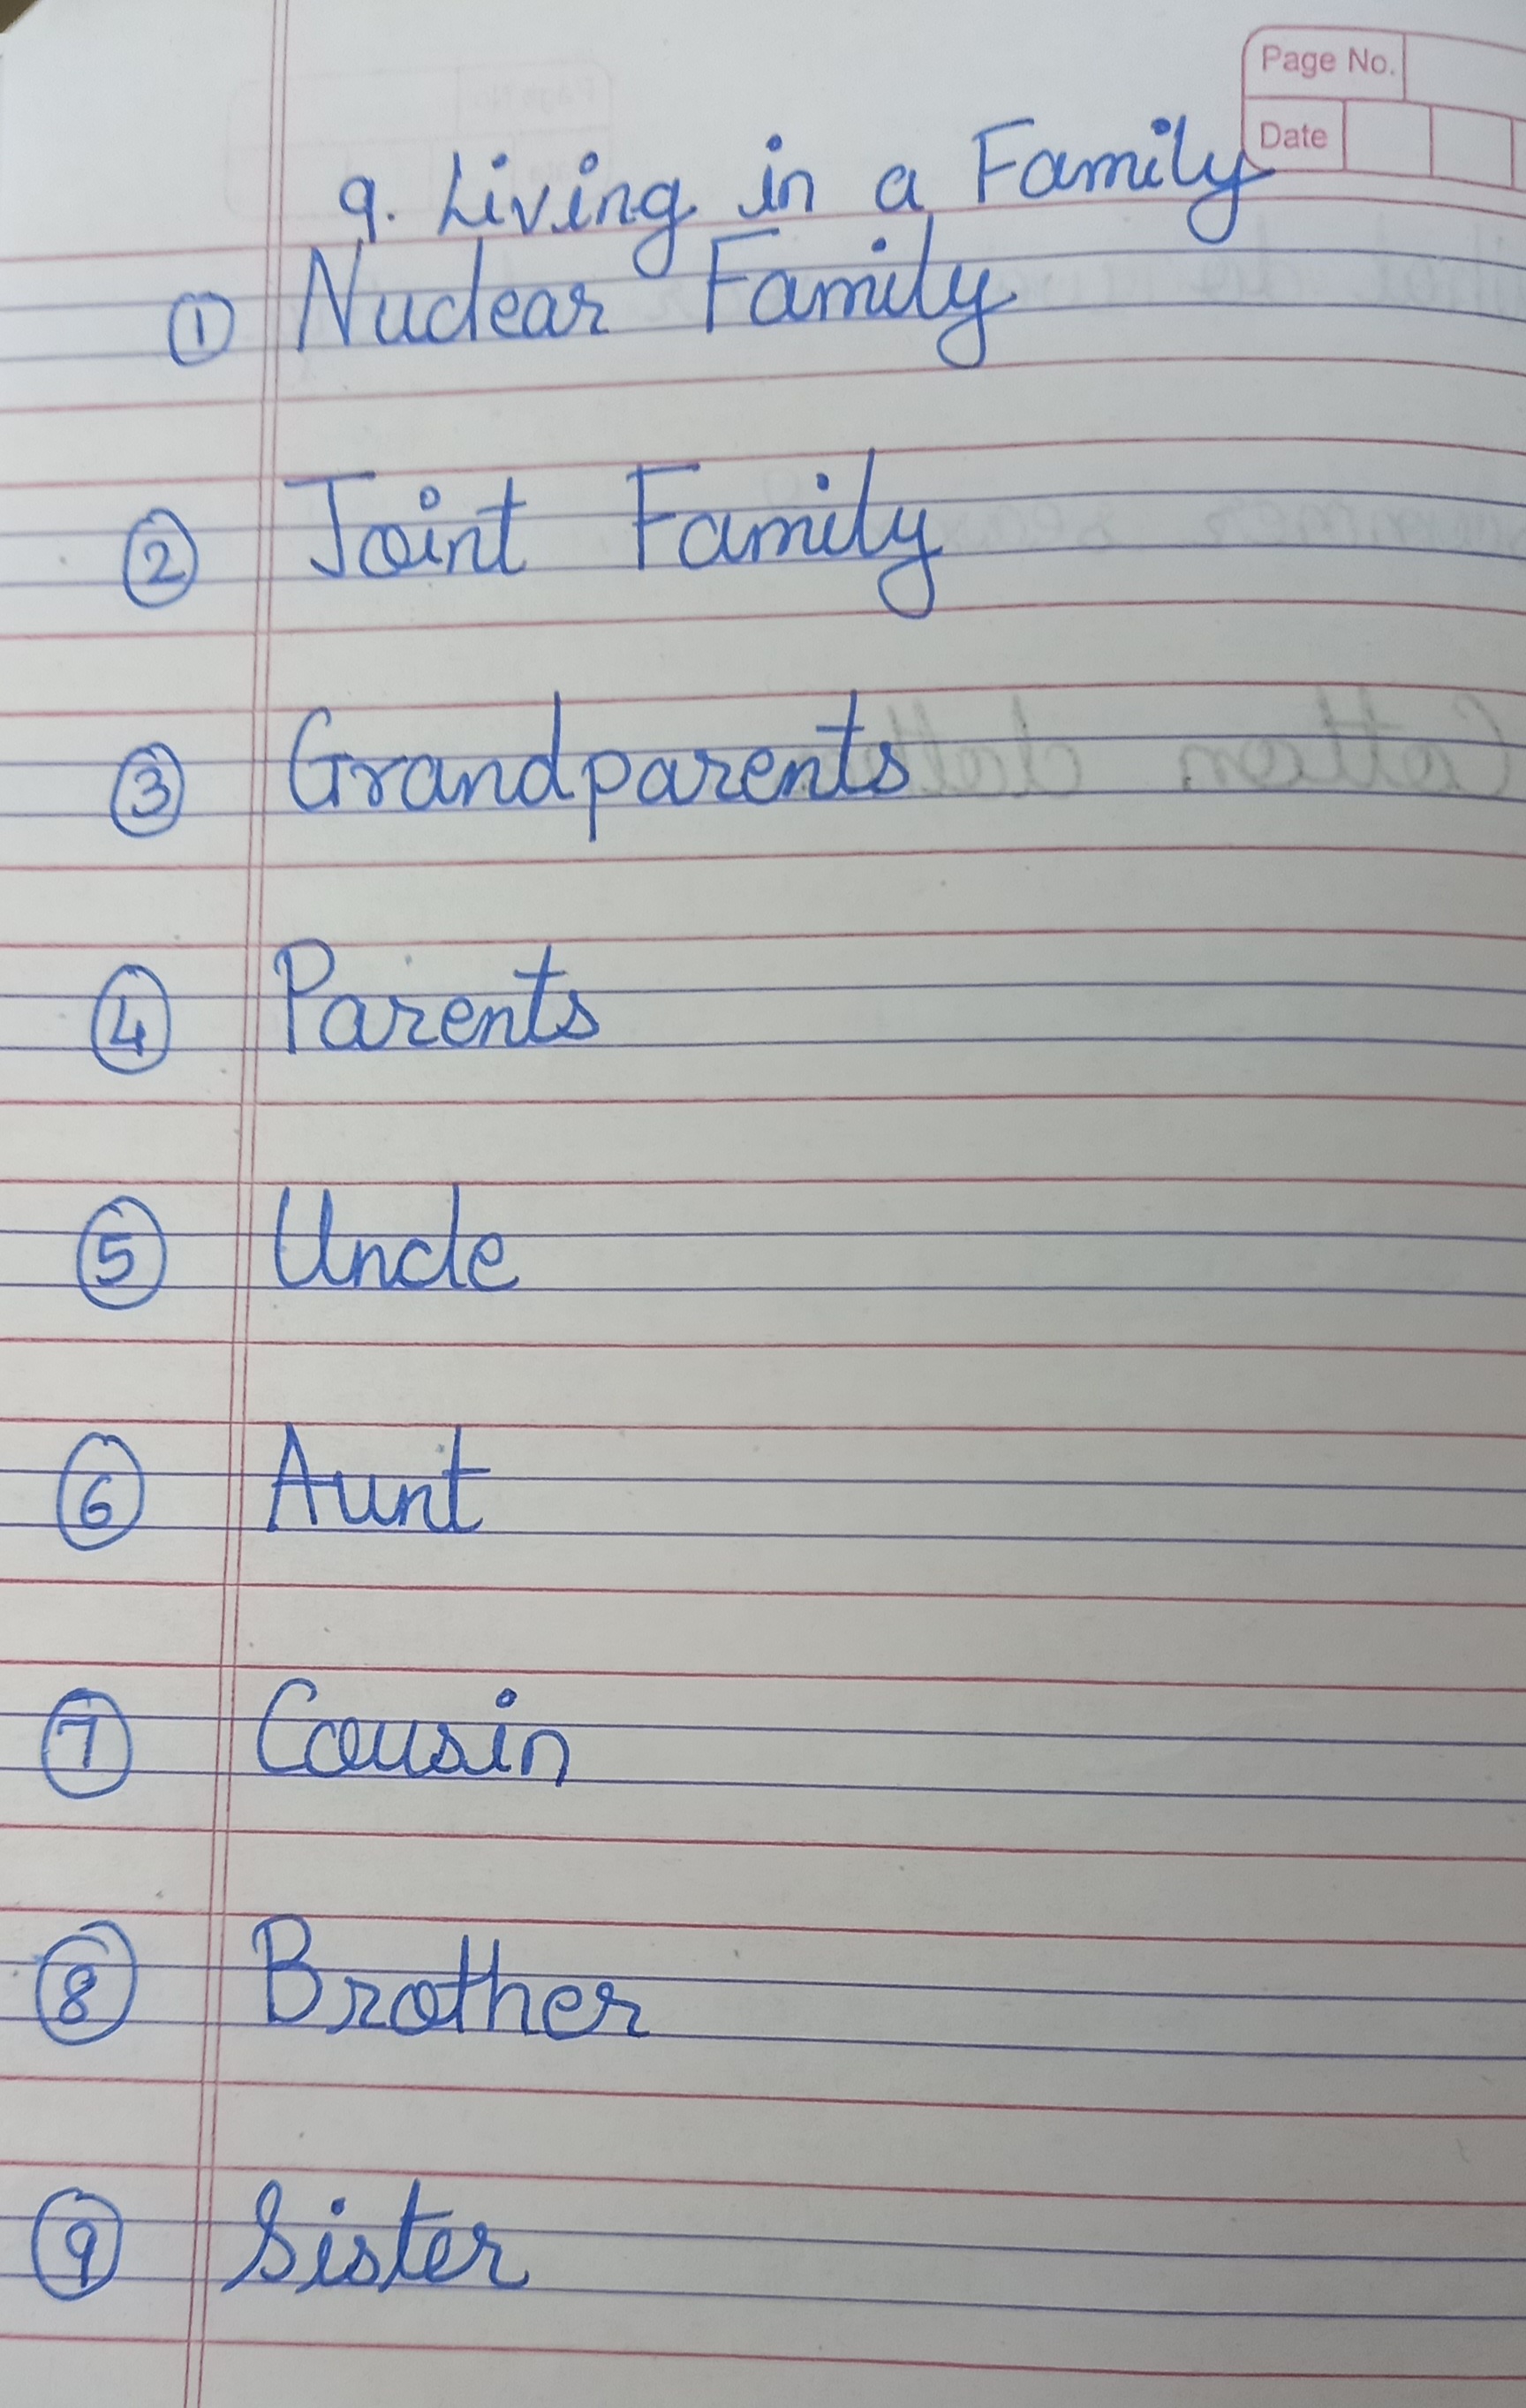 Page No.
Date
9. Living in a Family
① Nuclear Family
② Joint Family
③ Grandparents
④ Parents
⑤ Uncle
⑥ Aunt
⑦ Cousin
⑧ Brother
⑨ Sister